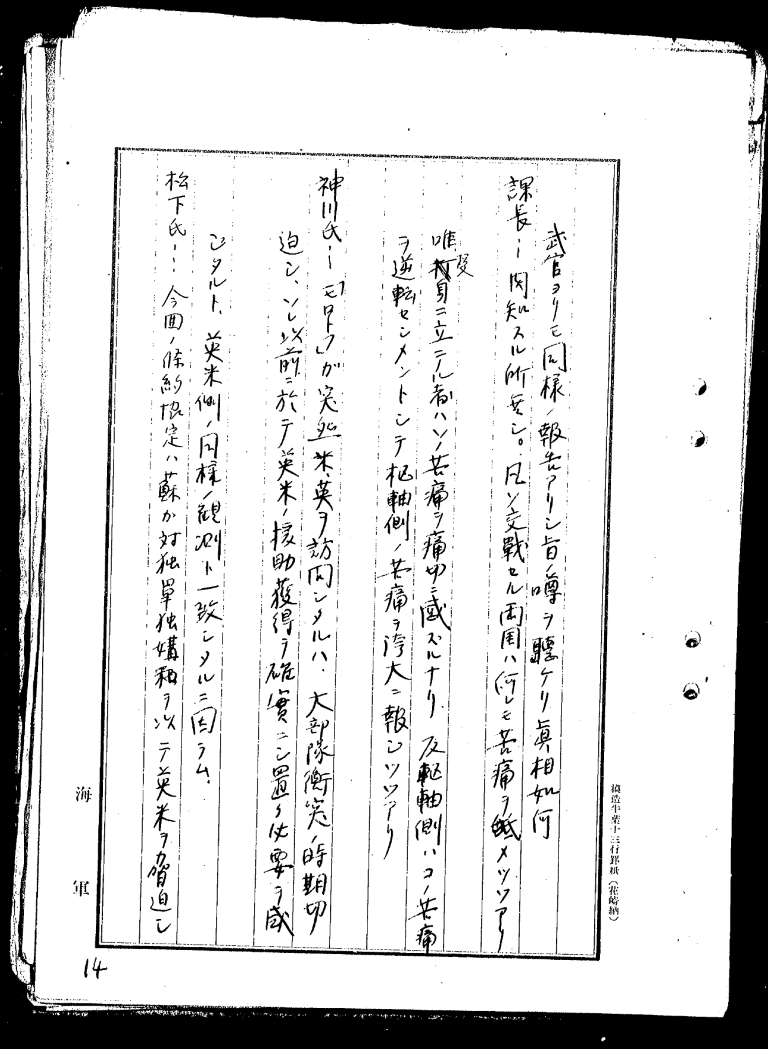 武官ヨリモ同様ノ報告アリシ旨ノ噂ヲ聽ケリ眞相如何
課長ー関知スル所無シ。凡ソ交戰セル両国ハ何レモ苦痛ヲ舐メツツアリ
唯受身ニ立テル者ハソノ苦痛ヲ痛切ニ感ズルナリ 反枢軸側ハコノ苦痛
ヲ逆転センメントシテ枢軸側ノ苦痛ヲ誇大ニ報シツツアリ
神川氏ー「モロトフ」ガ突然米、英ヲ訪問シタルハ、大部隊衝突ノ時期切
迫シ、ソレ以前ニ於テ英米ノ援助獲得ヲ確實ニシ置ク必要ヲ感
ジタルト、英米側ノ同様ノ観測ト一致シタルニ因ラム、
松下氏ー 今回ノ條約協定ハ蘇が対独單独媾和ヲ以テ英米ヲ脅迫シ
海軍
14